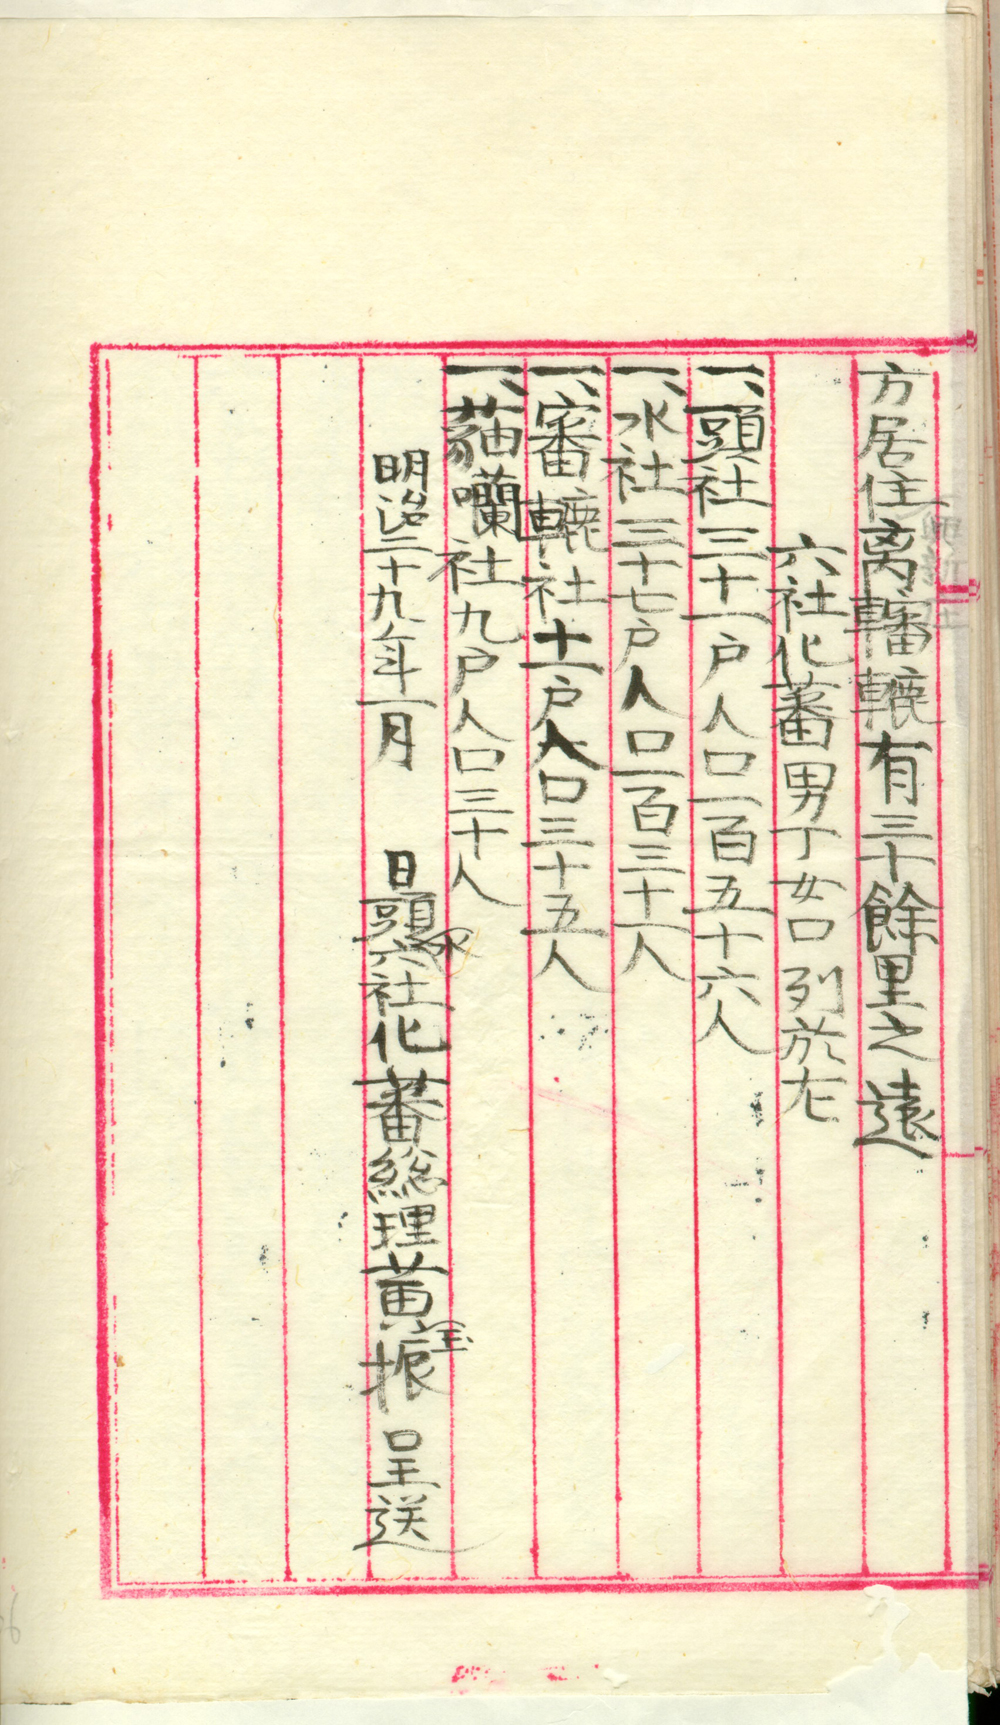 方居住离轓轆有三十餘里之遠
六社化蕃男丁女口列於左
一、頭社三十一戶人口一百五十六人
一、水社三十七戶人口一百三十一人
一、審轆社十一戶人口三十五人
一、猫囒社九戶人口三十人
明治二十九年一月　日頭水六社化蕃総理黄玉振呈送